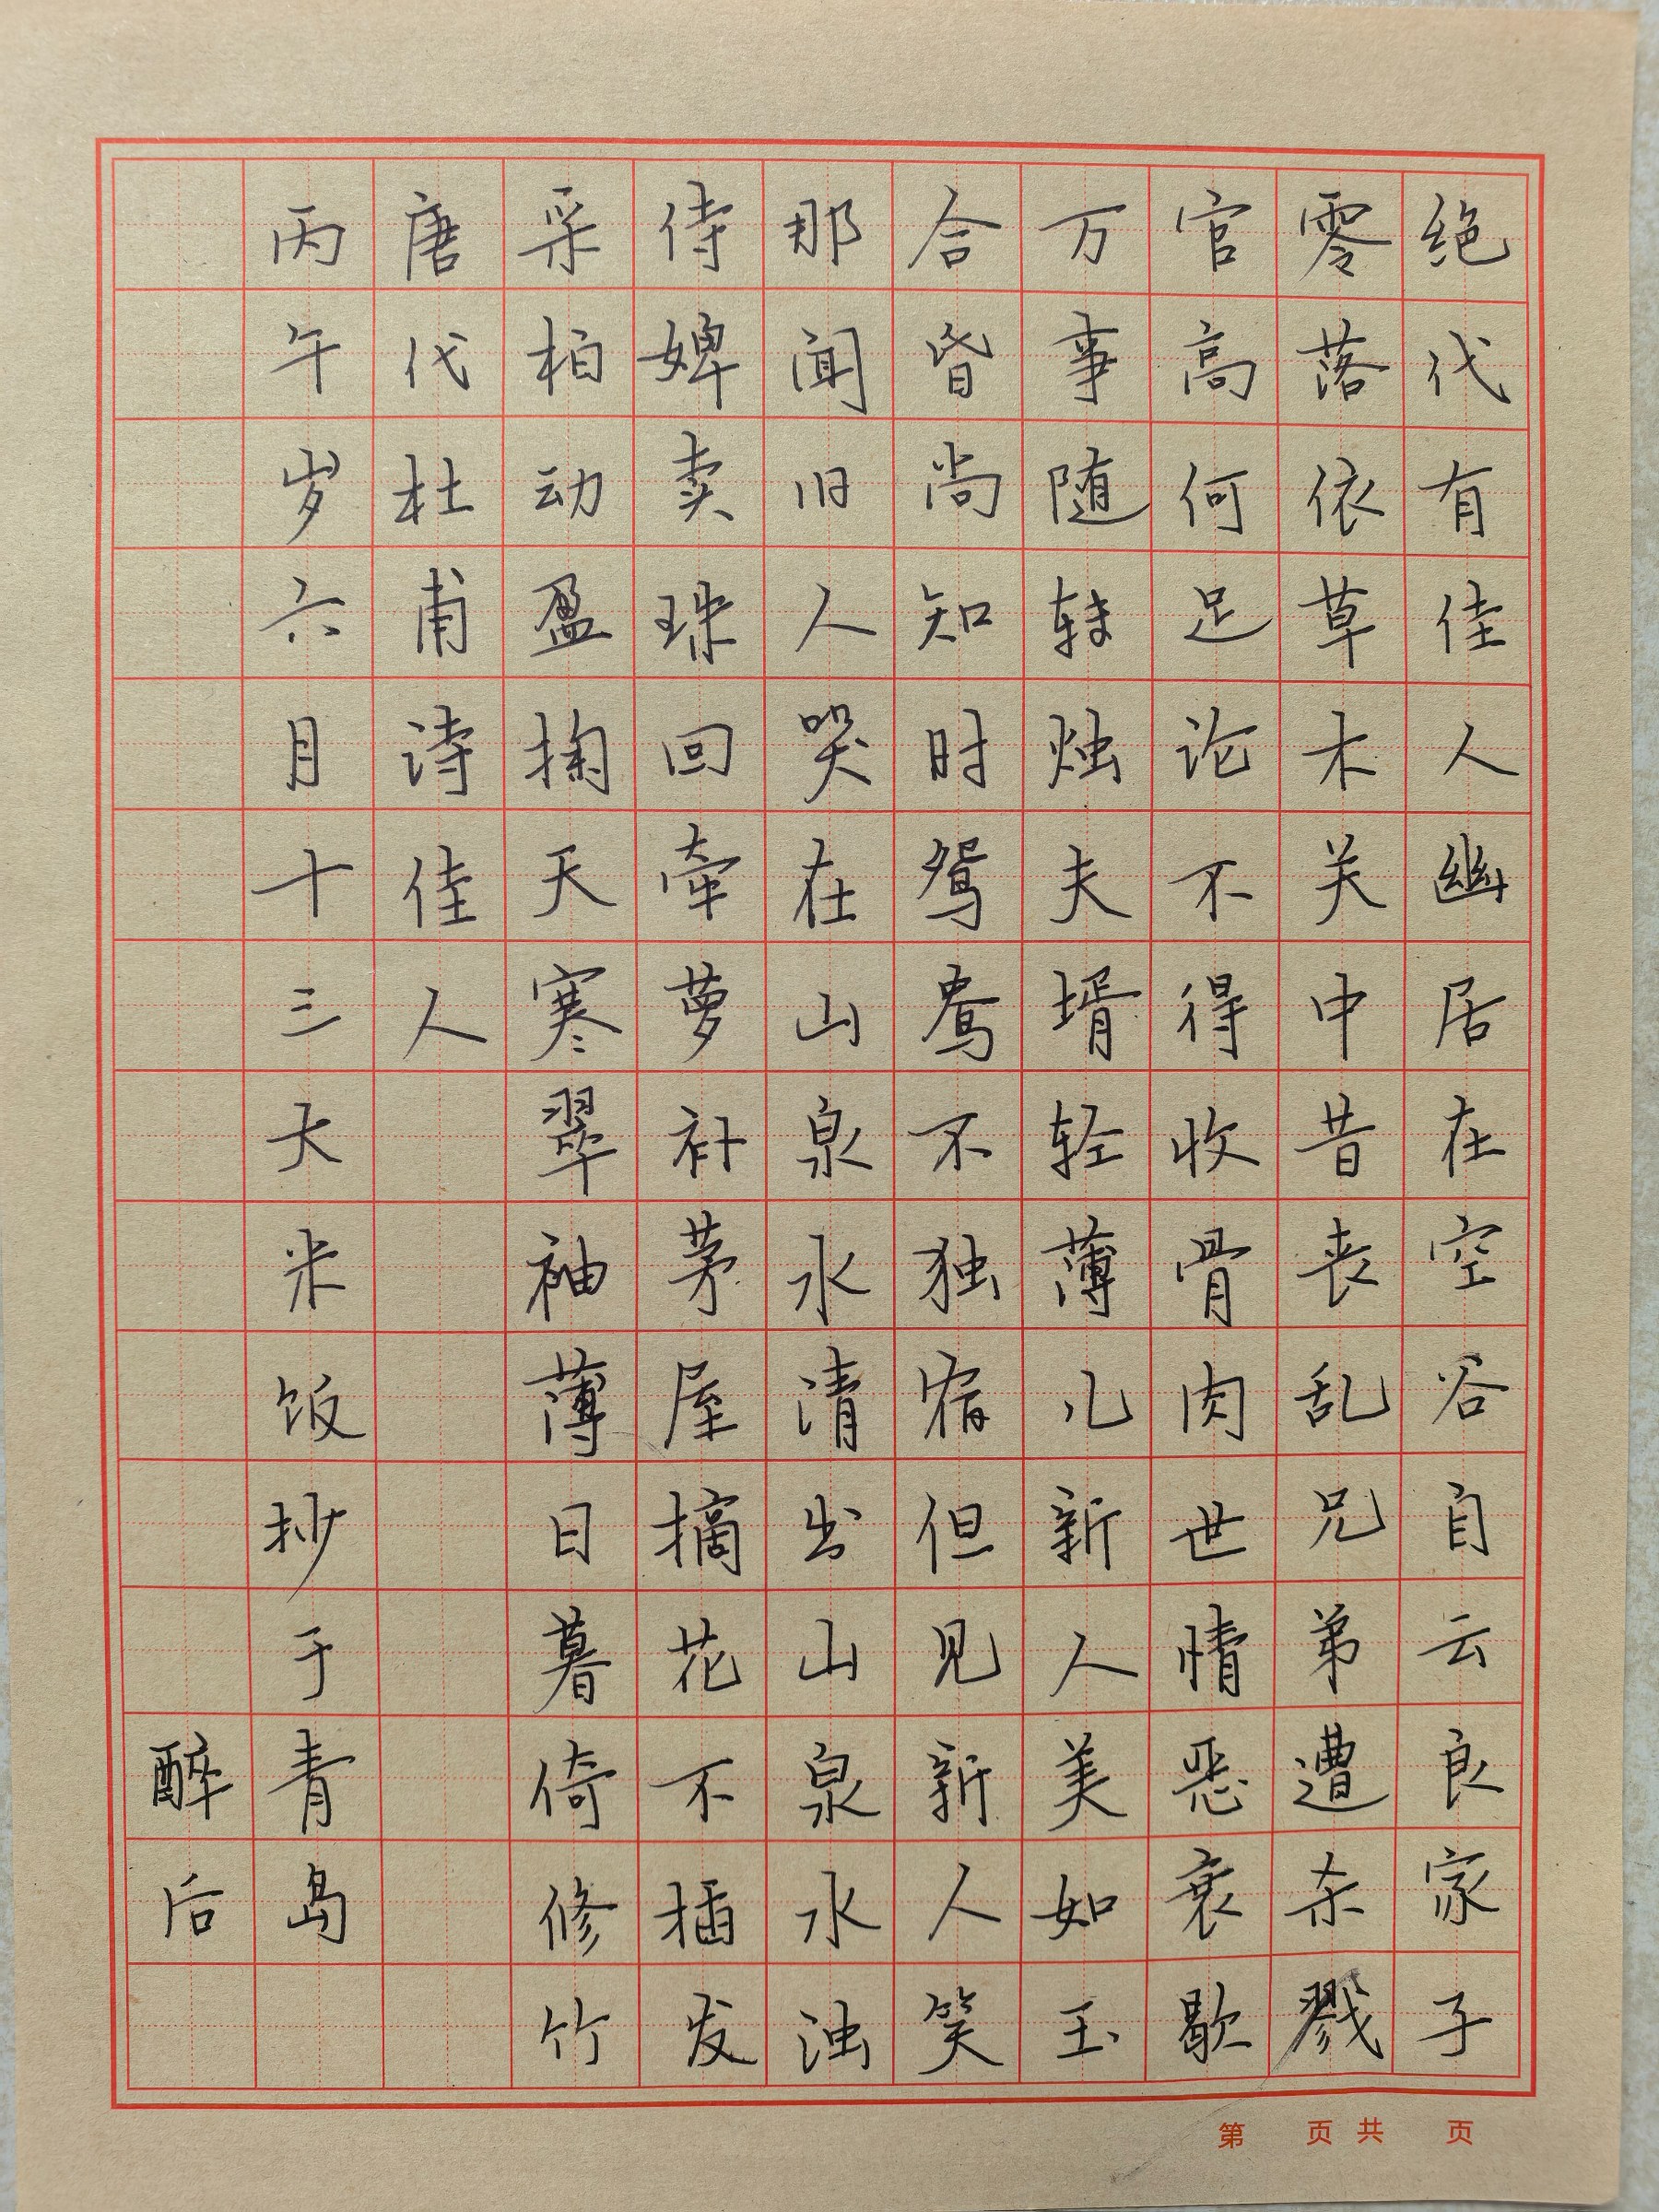 绝代有佳人幽居在空谷自云良家子
零落依草木关中昔丧乱兄弟遭杀戮
官高何足论不得收骨肉世情恶衰歇
万事随转烛夫婿轻薄儿新人美如玉
合昏尚知时鸳鸯不独宿但见新人笑
那闻旧人哭在山泉水清出山泉水浊
侍婢卖珠回牵萝补茅屋摘花不插发
采柏动盈掬天寒翠袖薄日暮倚修竹
唐代杜甫诗佳人
丙午岁六月十三大米饭抄于青岛
醉后
第 页共 页